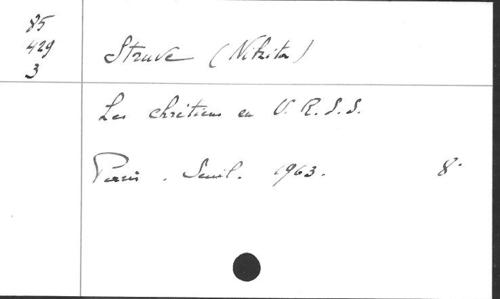 85
429
3
Struve (Nikita)
Les chrétiens en U.R.S.S.
Paris. Seuil. 1963. 8°